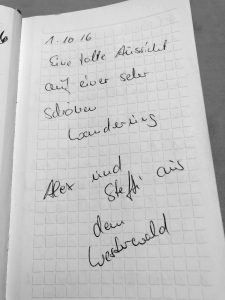 6
1.10.16
Eine tolle Aussicht
auf einer sehr
schönen
Wanderung
Alex und
Steffi aus
dem
Westerwald